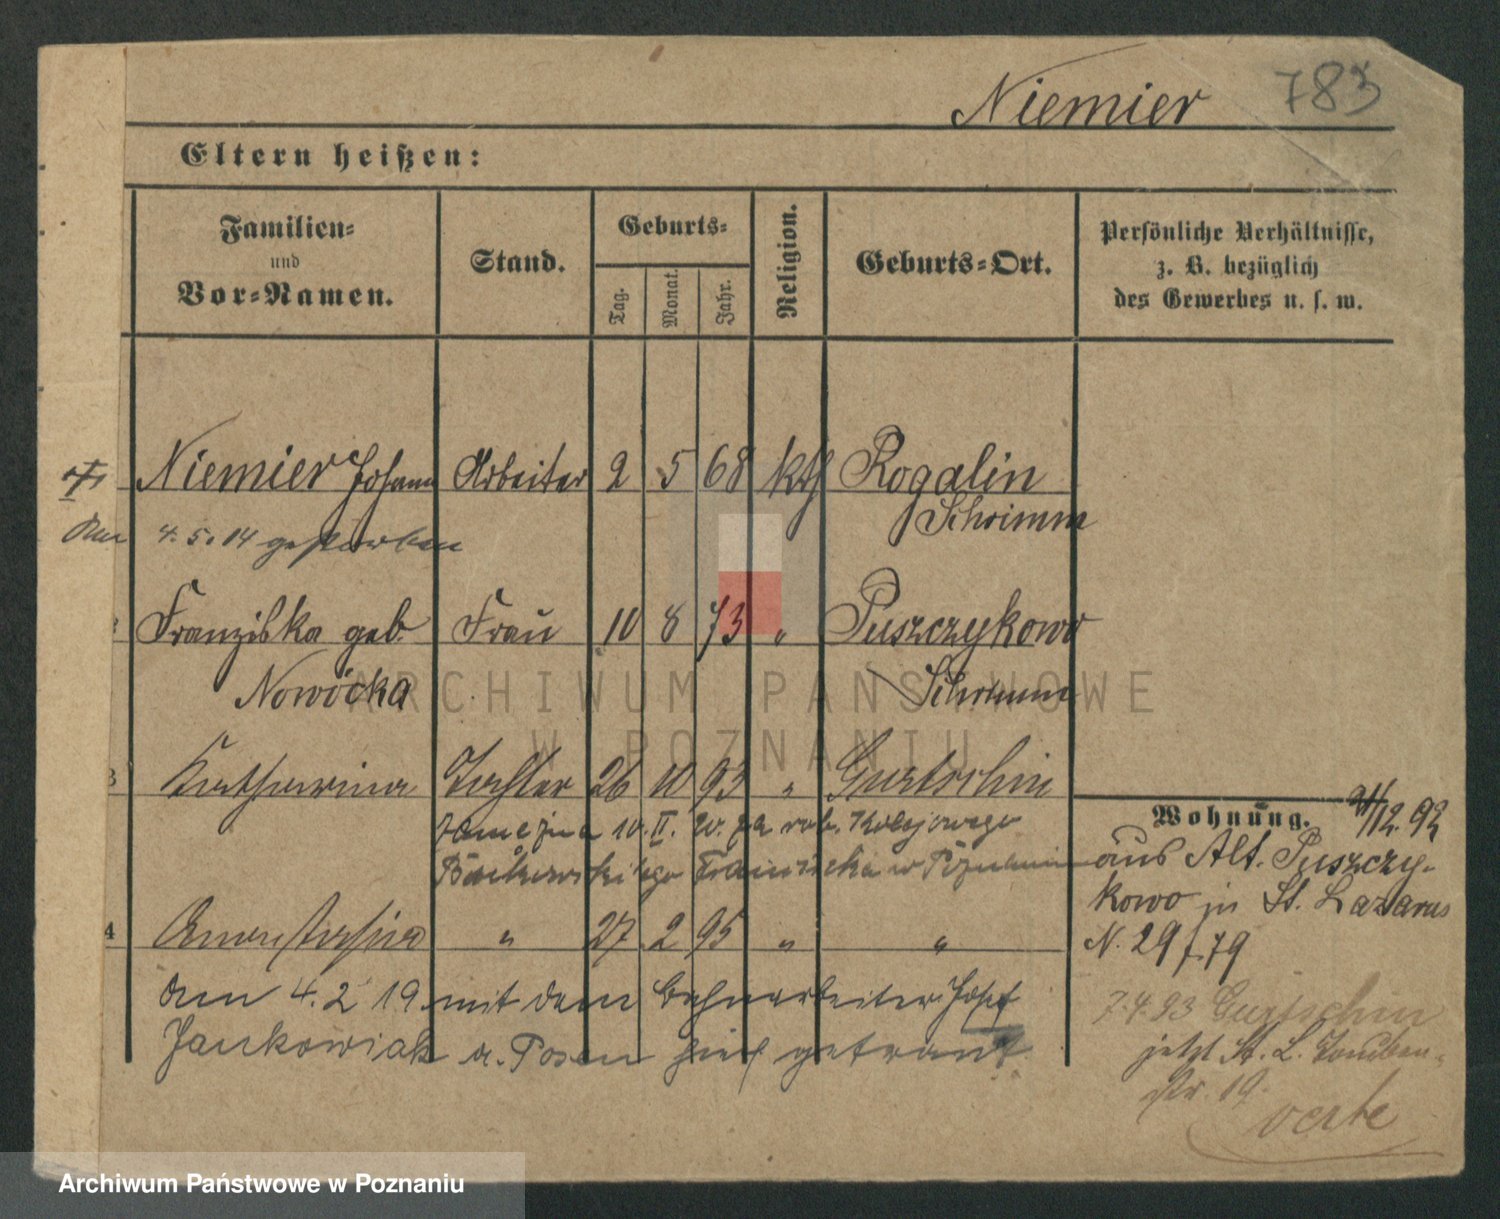 Niemier 783
Eltern heißen:
Familien=
und
Vor=Namen.
Stand.
Geburts=
Tag.
Monat.
Jahr.
Religion.
Geburts=Ort.
Persönliche Verhältnisse,
z. B. bezüglich
des Gewerbes u. s. w.
Niemier Johann Arbeiter 2 5 68 kth Rogalin
Schrimm
4. 5. 14 gestorben
Franziska geb. Frau 10 8 73 " Puszczykowo
Nowicka Schrimm
3 Katharina Tochter 26 10 93 " Gurtschin
zamężna 10. II. 20. za rob. kolejowego
Franciszka w Poznaniu
4 Anastasia " 27 2 95 " "
den 4. 2 19. mit dem Bahnarbeiter Josef
Jankowiak a. Posen hier getraut
Wohnung.
/12. 92
aus Alt. Puszczy-
kowo in St. Lazarus
N. 29/79
7.4.93 Gurtschin
jetzt St. L.
19.
verte
ARCHIWUM PAŃSTWOWE
W POZNANIU
Archiwum Państwowe w Poznaniu